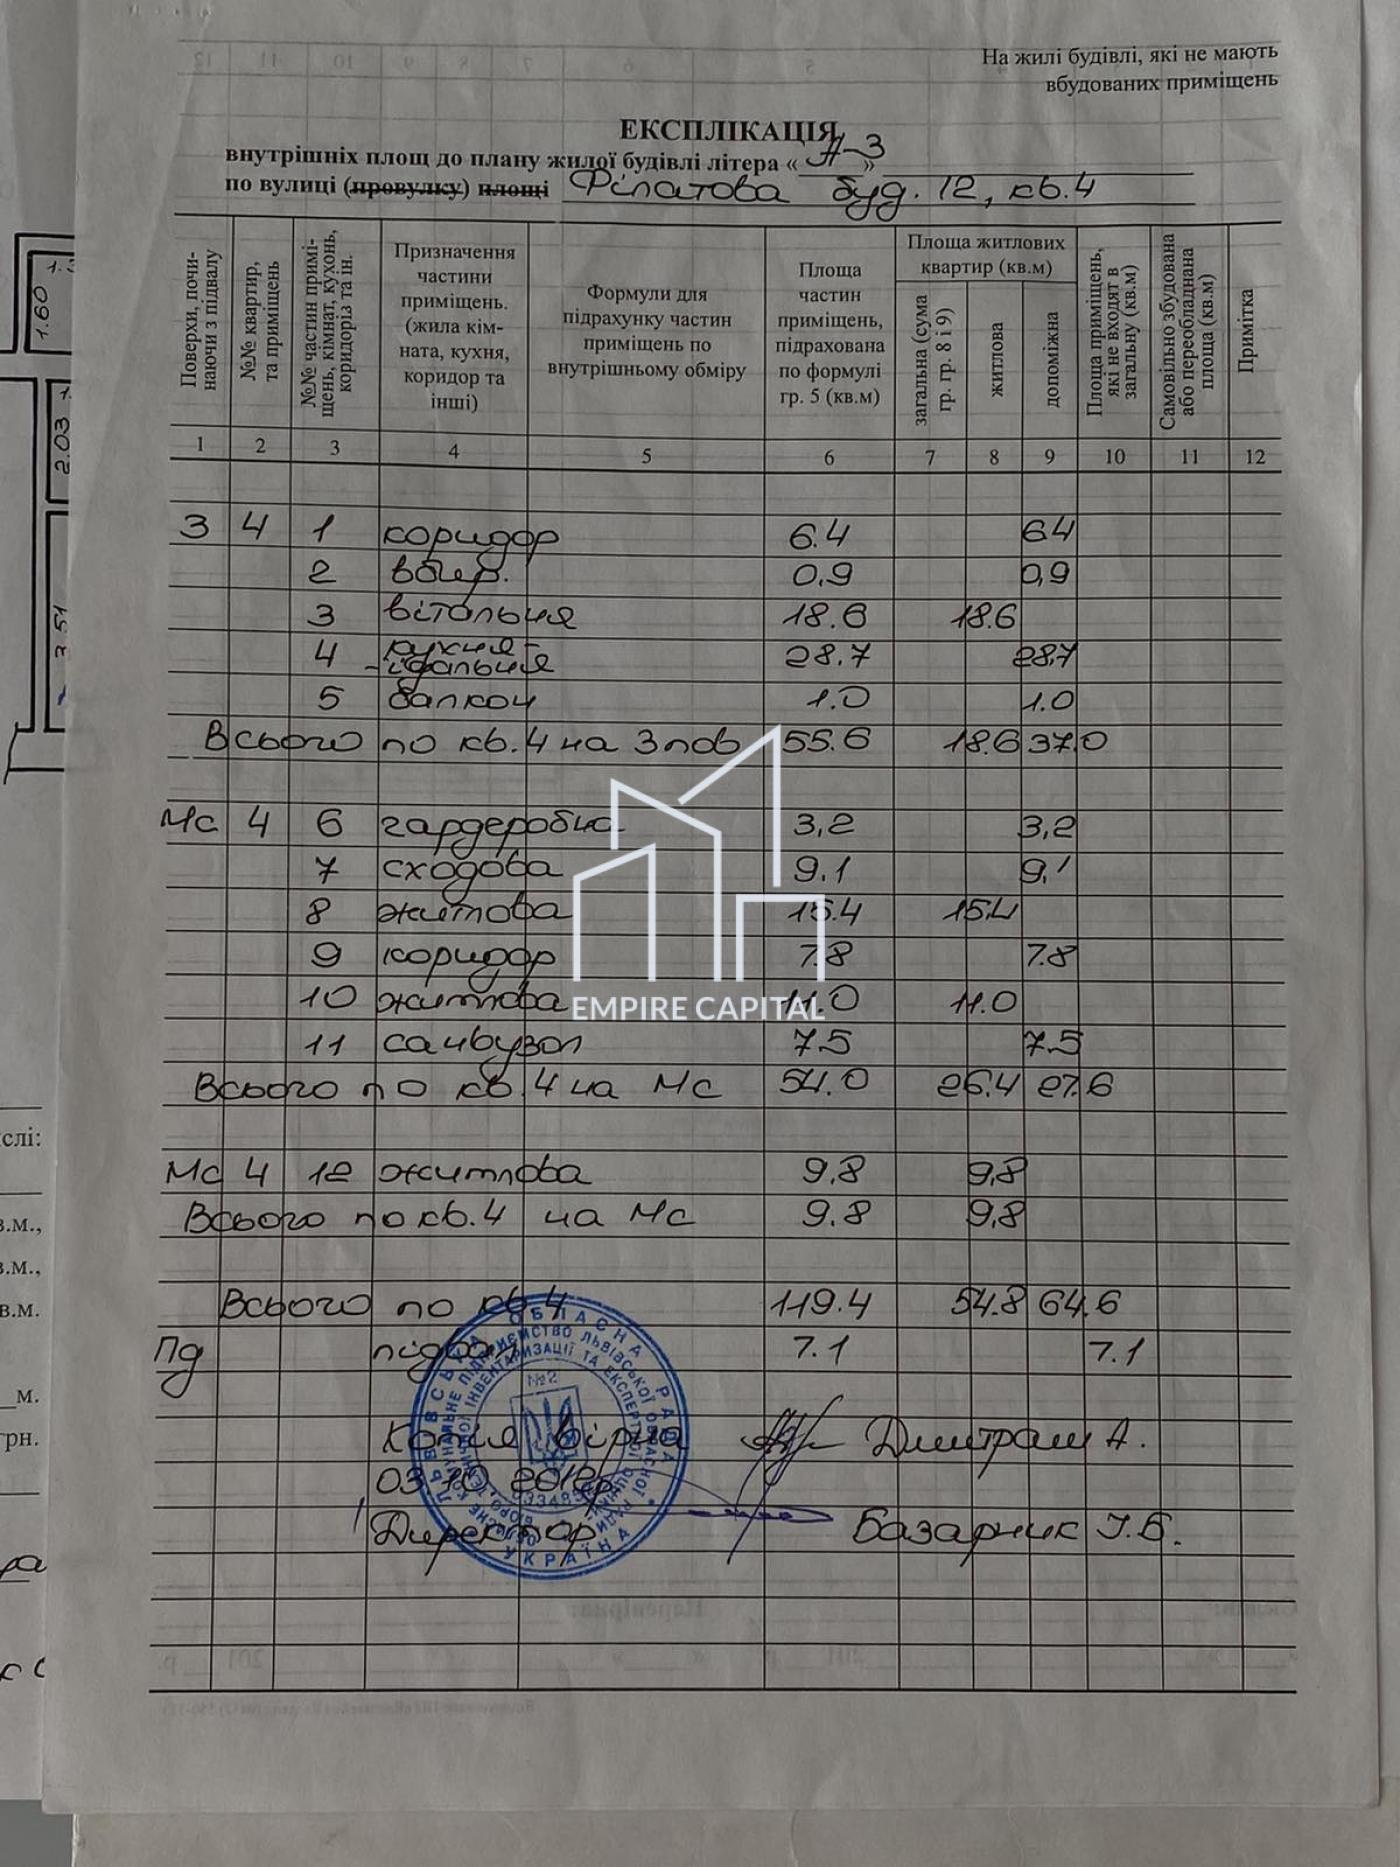 На жилі будівлі, які не мають
вбудованих приміщень
ЕКСПЛІКАЦІЯ
внутрішніх площ до плану жилої будівлі літера «А-3»
по вулиці (провулку) площі Філатова буд. 12, кв.4
Поверхи, почи-
наючи з підвалу
№№ квартир,
та приміщень
№№ частин примі-
щень, кімнат, кухонь,
коридоріз та ін.
Призначення
частини
приміщень.
(жила кім-
ната, кухня,
коридор та
інші)
Формули для
підрахунку частин
приміщень по
внутрішньому обміру
Площа
частин
приміщень,
підрахована
по формулі
гр. 5 (кв.м)
Площа житлових
квартир (кв.м)
загальна (сума
гр. гр. 8 і 9)
житлова
допоміжна
Площа приміщень,
які не входят в
загальну (кв.м)
Самовільно збудована
або переобладнана
площа (кв.м)
Примітка
1 2 3 4 5 6 7 8 9 10 11 12
3 4 1 коридор 6.4 6.4
2 вбир. 0,9 0,9
3 вітальня 18.6 18.6
4 кухня-
-їдальня 28.7 28,7
5 балкон 1.0 1.0
Всього по кв.4 на 3 пов 55.6 18.6 37.0
Мс 4 6 гардеробна 3,2 3,2
7 сходова 9.1 9.1
8 житлова 15.4 15.4
9 коридор 7.8 7.8
10 житлова 11.0 11.0
EMPIRE CAPITAL
11 санвузол 7.5 7.5
Всього по кв.4 на Мс 54.0 26.4 27.6
Мс 4 12 житлова 9,8 9,8
Всього по кв.4 на Мс 9.8 9,8
Всього по кв.4 119.4 54.8 64.6
Пд підвал 7.1 7.1
Копія вірна Дмитраш А.
03.10.2012р
Директор Базарник І.Б.
ЛЬВІВСЬКА ОБЛАСНА РАДА
УКРАЇНА
№2
1.60
2.03
3.51
слі:
в.м.,
в.м.,
в.м.
м.
грн.